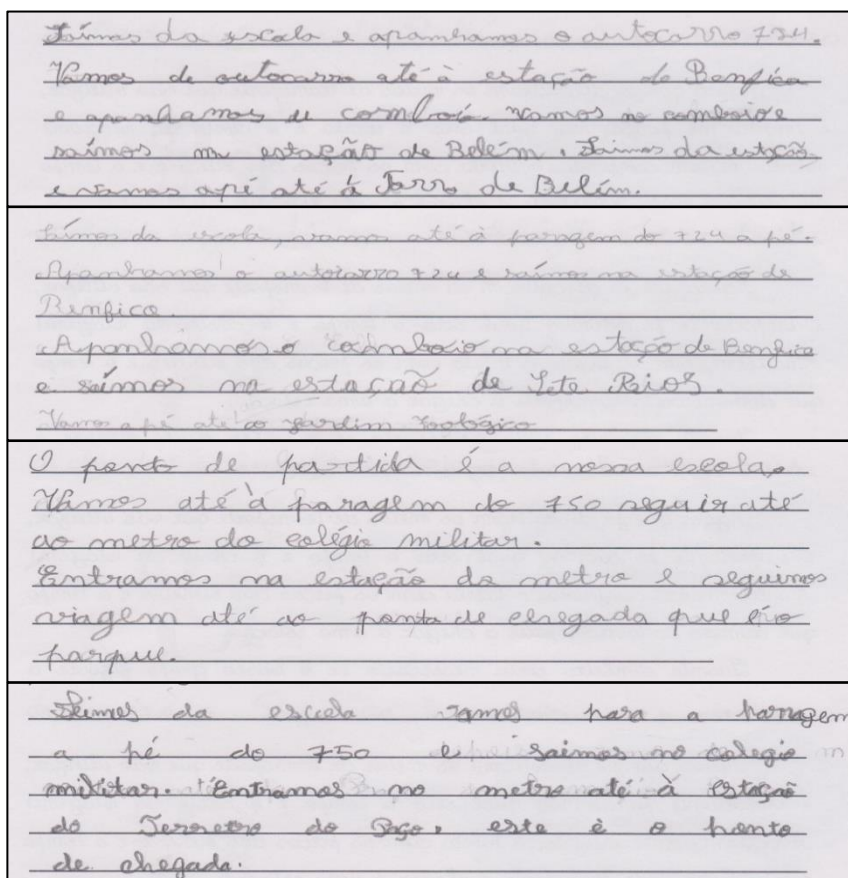 Saímos da escola e apanhamos o autocarro 724.
Vamos de autocarro até à estação de Benfica
e apanhamos u comboi. Vamos no comboio e
saímos na estação de Belém. Saimos da estação
e vamos apé até à Torre de Belém.
Saímos da escola, vamos até à paragem do 724 a pé.
Apanhamos o autocarro 724 e saímos na estação de
Benfica.
Apanhamos o comboio na estação de Benfica
e saímos na estação de Sete Rios.
Vamos a pé até ao jardim zoológico
O ponto de partida é a nossa escola.
Vamos até à paragem do 750 seguir até
ao metro do colégio militar.
Entramos na estação do metro e seguimos
viagem até ao ponto de chegada que é o
parque.
Saimos da escola vamos para a paragem
a pé do 750 e saimos no colegio
militar. Entramos no metro até à estação
do Terreiro do Paço. este é o ponto
de chegada.